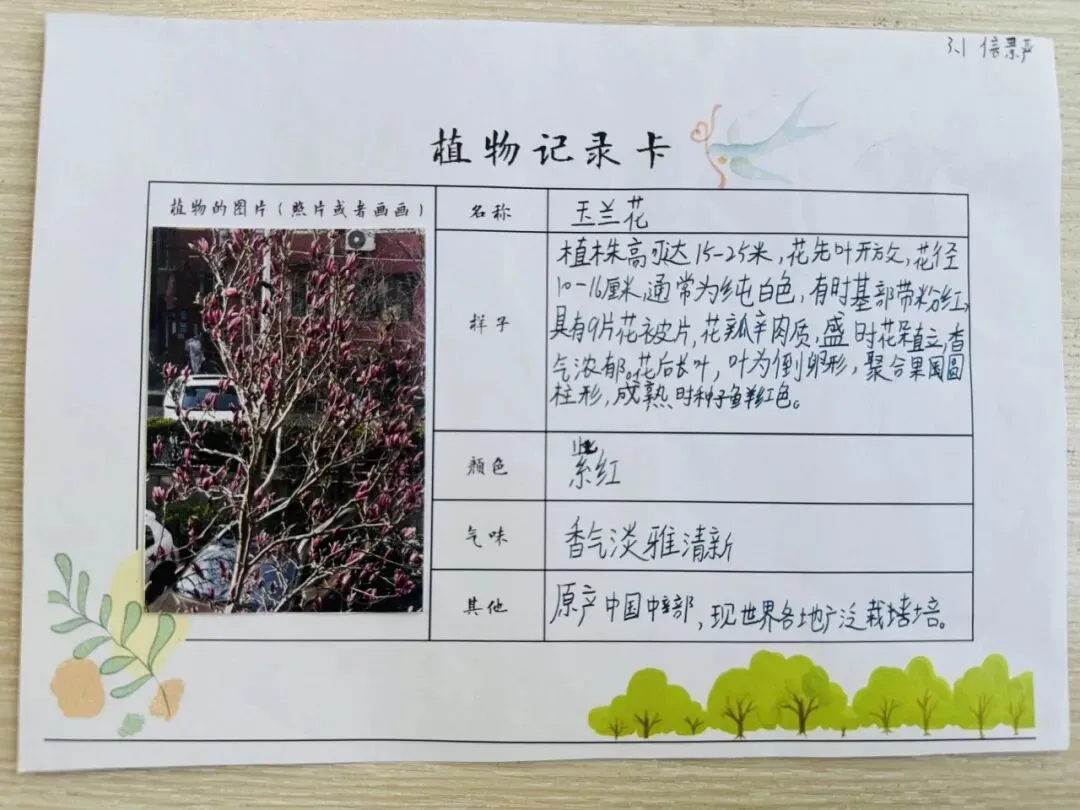 3.1 倍景严
植物记录卡
植物的图片(照片或者画画)
名称
玉兰花
样子
植株高可达15-25米,花先叶开放,花径
10-16厘米,通常为纯白色,有时基部带粉红,
具有9片花被片,花瓣半肉质,盛时花朵直立,香
气浓郁。花后长叶,叶为倒卵形,聚合果圆
柱形,成熟时种子鲜红色。
颜色
紫红
气味
香气淡雅清新
其他
原产中国中部,现世界各地广泛栽培。